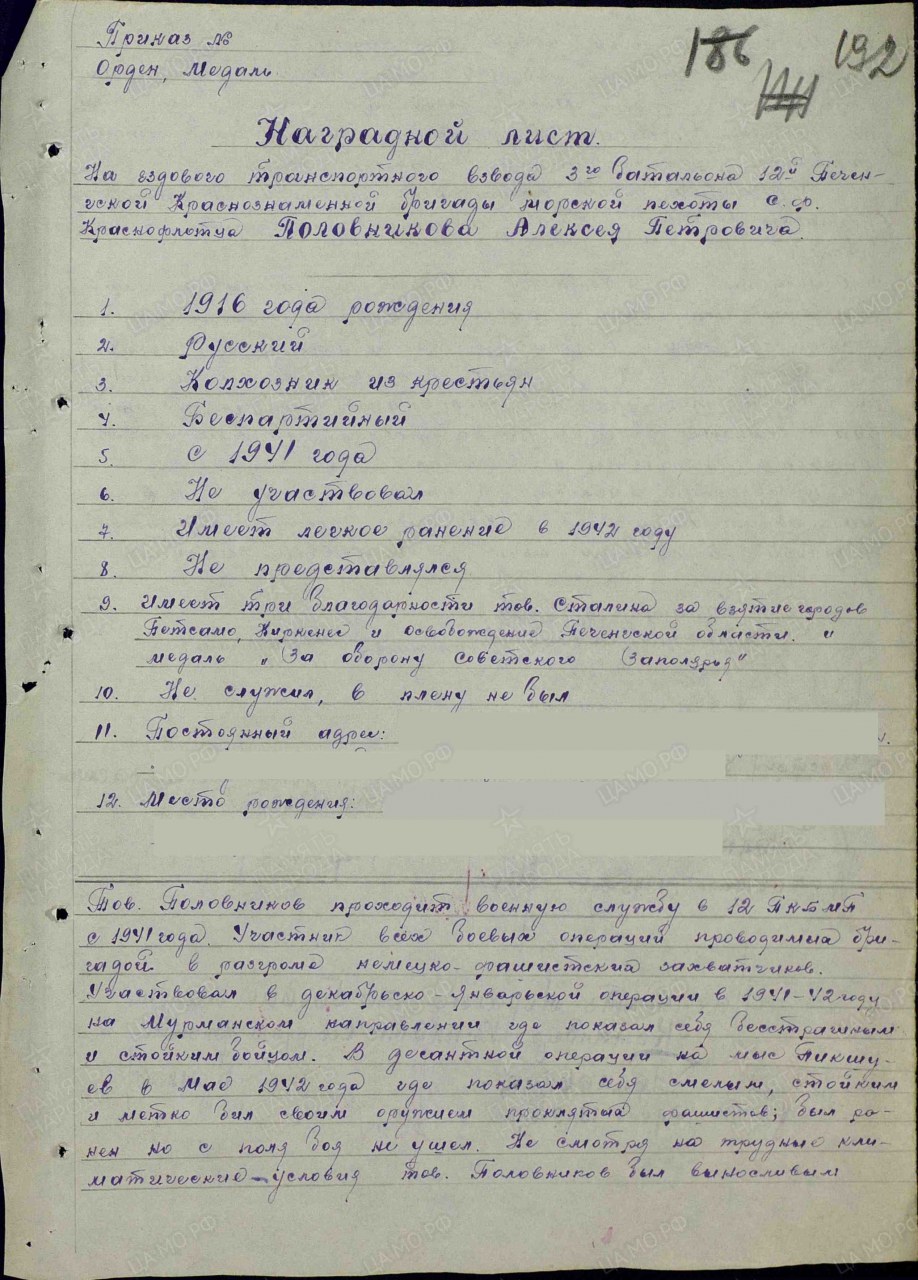 Приказ №
Орден, Медаль
186 192
Наградной лист.
На ездового транспортного взвода 3го батальона 12й Печен-
гской Краснознаменной бригады морской пехоты с.ф.
Краснофлотца Половникова Алексея Петровича.
1. 1916 года рождения
2. Русский
3. Колхозник из крестьян
4. Беспартийный
5. с 1941 года
6. Не участвовал
7. Имеет легкое ранение в 1942 году
8. Не представлялся
9. Имеет три благодарности тов. Сталина за взятие городов
Петсамо, Киркенес и освобождение Печенгской области. и
медаль „За оборону советского Заполярья"
10. Не служил, в плену не был
11. Постоянный адрес:
12. Место рождения:
Тов. Половников проходит военную службу в 12 ПКБМП
с 1941 года. Участник всех боевых операций проводимых бри-
гадой в разгроме немецко-фашистских захватчиков.
Участвовал в декабрьско-январьской операции в 1941-42 году
на Мурманском направлении где показал себя бесстрашным
и стойким бойцом. В десантной операции на мыс Пикшу-
ев в Мае 1942 года где показал себя смелым, стойким
и метко бил своим оружием проклятых фашистов; был ра-
нен но с поля боя не ушел. Не смотря на трудные кли-
матические условия тов. Половников был выносливым
ЦАМО.РФ
ПАМЯТЬ НАРОДА